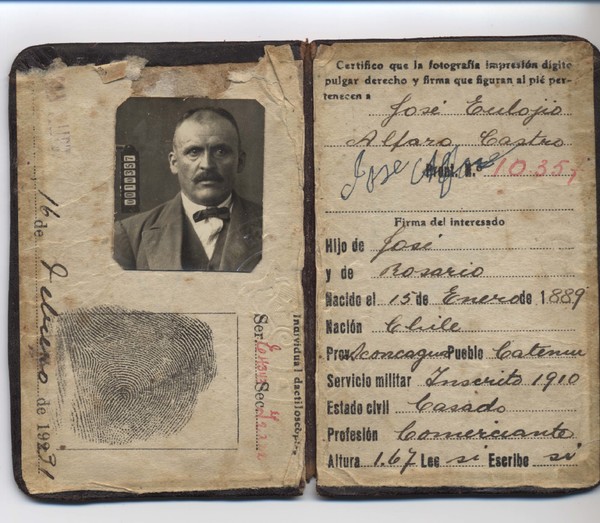 16 de Febrero de 1931
Individual dactiloscópica
Ser.
Sec.
Certifico que la fotografía impresión dígito
pulgar derecho y firma que figuran al pié per-
tenecen a
José Eulojio
Alfaro Castro
Jose Alfaro
Pront. N.° 1035,
Firma del interesado
Hijo de José
y de Rosario
Nacido el 15 de Enero de 1889
Nación Chile
Prov. Aconcagua Pueblo Catemu
Servicio militar Inscrito 1910
Estado civil Casado
Profesión Comerciante
Altura 1.67 Lee si Escribe si